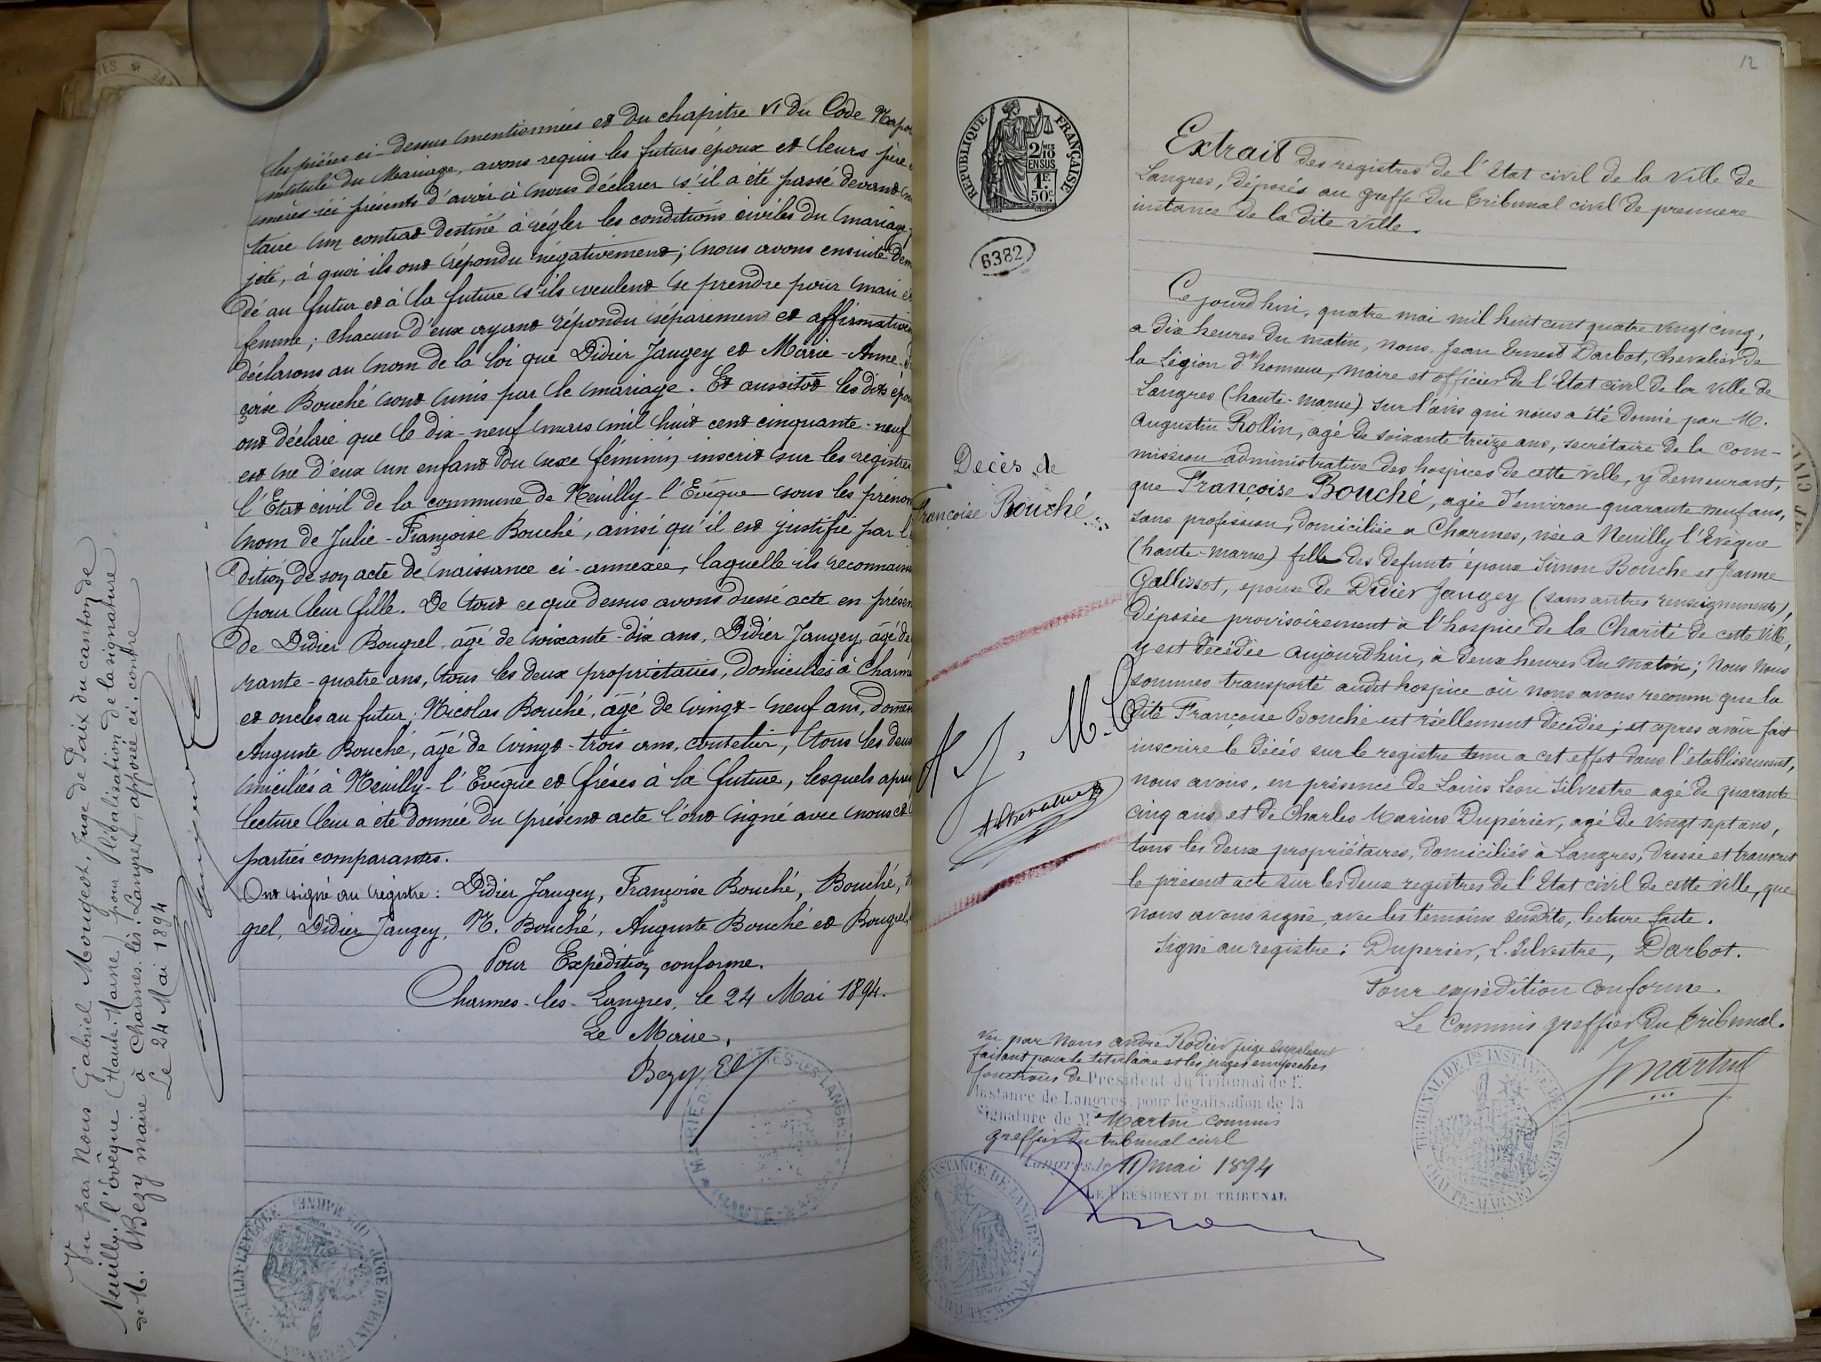 les pièces ci-dessus mentionnées et du chapitre VI du Code Napo
intitulé du Mariage, avons requis les futurs époux et leurs père
mères ici présents d'avoir à nous déclarer s'il a été passé devant
taire un contrat destiné à régler les conditions civiles du mariage
jeté, à quoi ils ont répondu négativement; nous avons ensuite dem
dé au futur et à la future s'ils veulent se prendre pour mari et
femme; chacun d'eux ayant répondu séparément et affirmative
déclarons au nom de la loi que Didier Jaugey et Marie-Anne-
çoise Bouché sont unis par le mariage. Et aussitôt les dits épo
ont déclaré que le dix-neuf mars mil huit cent cinquante-neuf
est né d'eux un enfant du sexe féminin inscrit sur les registres
l'Etat civil de la commune de Neuilly-l'Evêque sous les prénom
nom de Julie-Françoise Bouché, ainsi qu'il est justifié par l'
dition de son acte de naissance ci-annexée, laquelle ils reconnaiss
pour leur fille. De tout ce que dessus avons dressé acte en présen
de Didier Bougrel, âgé de soixante-dix ans, Didier Jaugey, âgé de
rante-quatre ans, tous les deux propriétaires, domiciliés à Charm
et oncles au futur; Nicolas Bouché, âgé de vingt-neuf ans, domes
Auguste Bouché, âgé de vingt-trois ans, coutelier, tous les deux
miciliés à Neuilly-l'Evêque et frères à la future, lesquels après
lecture leur a été donnée du présent acte l'ont signé avec nous et
parties comparantes.
Ont signé au registre: Didier Jaugey, Françoise Bouché, Bouché,
grel, Didier Jaugey, N. Bouché, Auguste Bouché et Bougrel
Pour Expédition conforme.
Charmes-les-Langres, le 24 Mai 1894.
Le Maire,
Bezy, El
Vu par Nous Gabriel Mougeot, Juge de Paix du canton de
Neuilly l'évêque (Haute-Marne) pour légalisation de la signature
de M. Bezy maire à Charmes-les-Langres, apposée ci-contre
Le 24 Mai 1894
12
REPUBLIQUE FRANÇAISE
2/10 EN SUS
1F 50C
6382
Extrait des registres de l'Etat civil de la Ville de
Langres, déposés au greffe du Tribunal civil de première
instance de la dite ville.
Décès de
Françoise Bouché
Ce jourd'hui, quatre mai mil huit cent quatre vingt cinq,
a dix heures du matin, nous Jean Ernest Darbot, Chevalier de
la Légion d'honneur, Maire et officier de l'Etat civil de la ville de
Langres (haute-marne) sur l'avis qui nous a été donné par M.
Augustin Rollin, agé de soixante treize ans, secrétaire de la Com-
mission administrative des hospices de cette ville, y demeurant,
que Françoise Bouché, agée d'environ quarante neuf ans,
sans profession, domiciliée à Charmes, née à Neuilly l'Evêque
(haute-marne) fille des défunts époux Simon Bouché et Jeanne
Gallissot, épouse de Didier Jaugey (sans autres renseignements),
déposée provisoirement à l'hospice de la Charité de cette Ville,
y est décédée aujourd'hui, à deux heures du matin; Nous Nous
sommes transporté audit hospice où nous avons reconnu que la
dite Françoise Bouché est réellement décédée; et après avoir fait
inscrire le décès sur le registre tenu à cet effet dans l'établissement,
nous avons, en présence de Louis Léon Silvestre agé de quarante
cinq ans, et de Charles Marius Dupérier, agé de vingt sept ans,
tous les deux propriétaires, domiciliés à Langres, dressé et transcrit
le présent acte sur les deux registres de l'Etat civil de cette ville, que
nous avons signé, avec les témoins susdits, lecture faite.
Signé au registre: Duperier, L. Silvestre, Darbot.
Pour expédition conforme.
Le Commis greffier du tribunal.
J Martin
Vu par Nous André Rodier juge suppléant
faisant pour le titulaire et les juges empêchés
fonctions de Président du Tribunal de 1re
Instance de Langres, pour légalisation de la
Signature de Me Martin commis
greffier du tribunal civil
Langres, le 11 mai 1894
LE PRÉSIDENT DU TRIBUNAL
TRIBUNAL DE 1RE INSTANCE DE LANGRES
HAUTE-MARNE